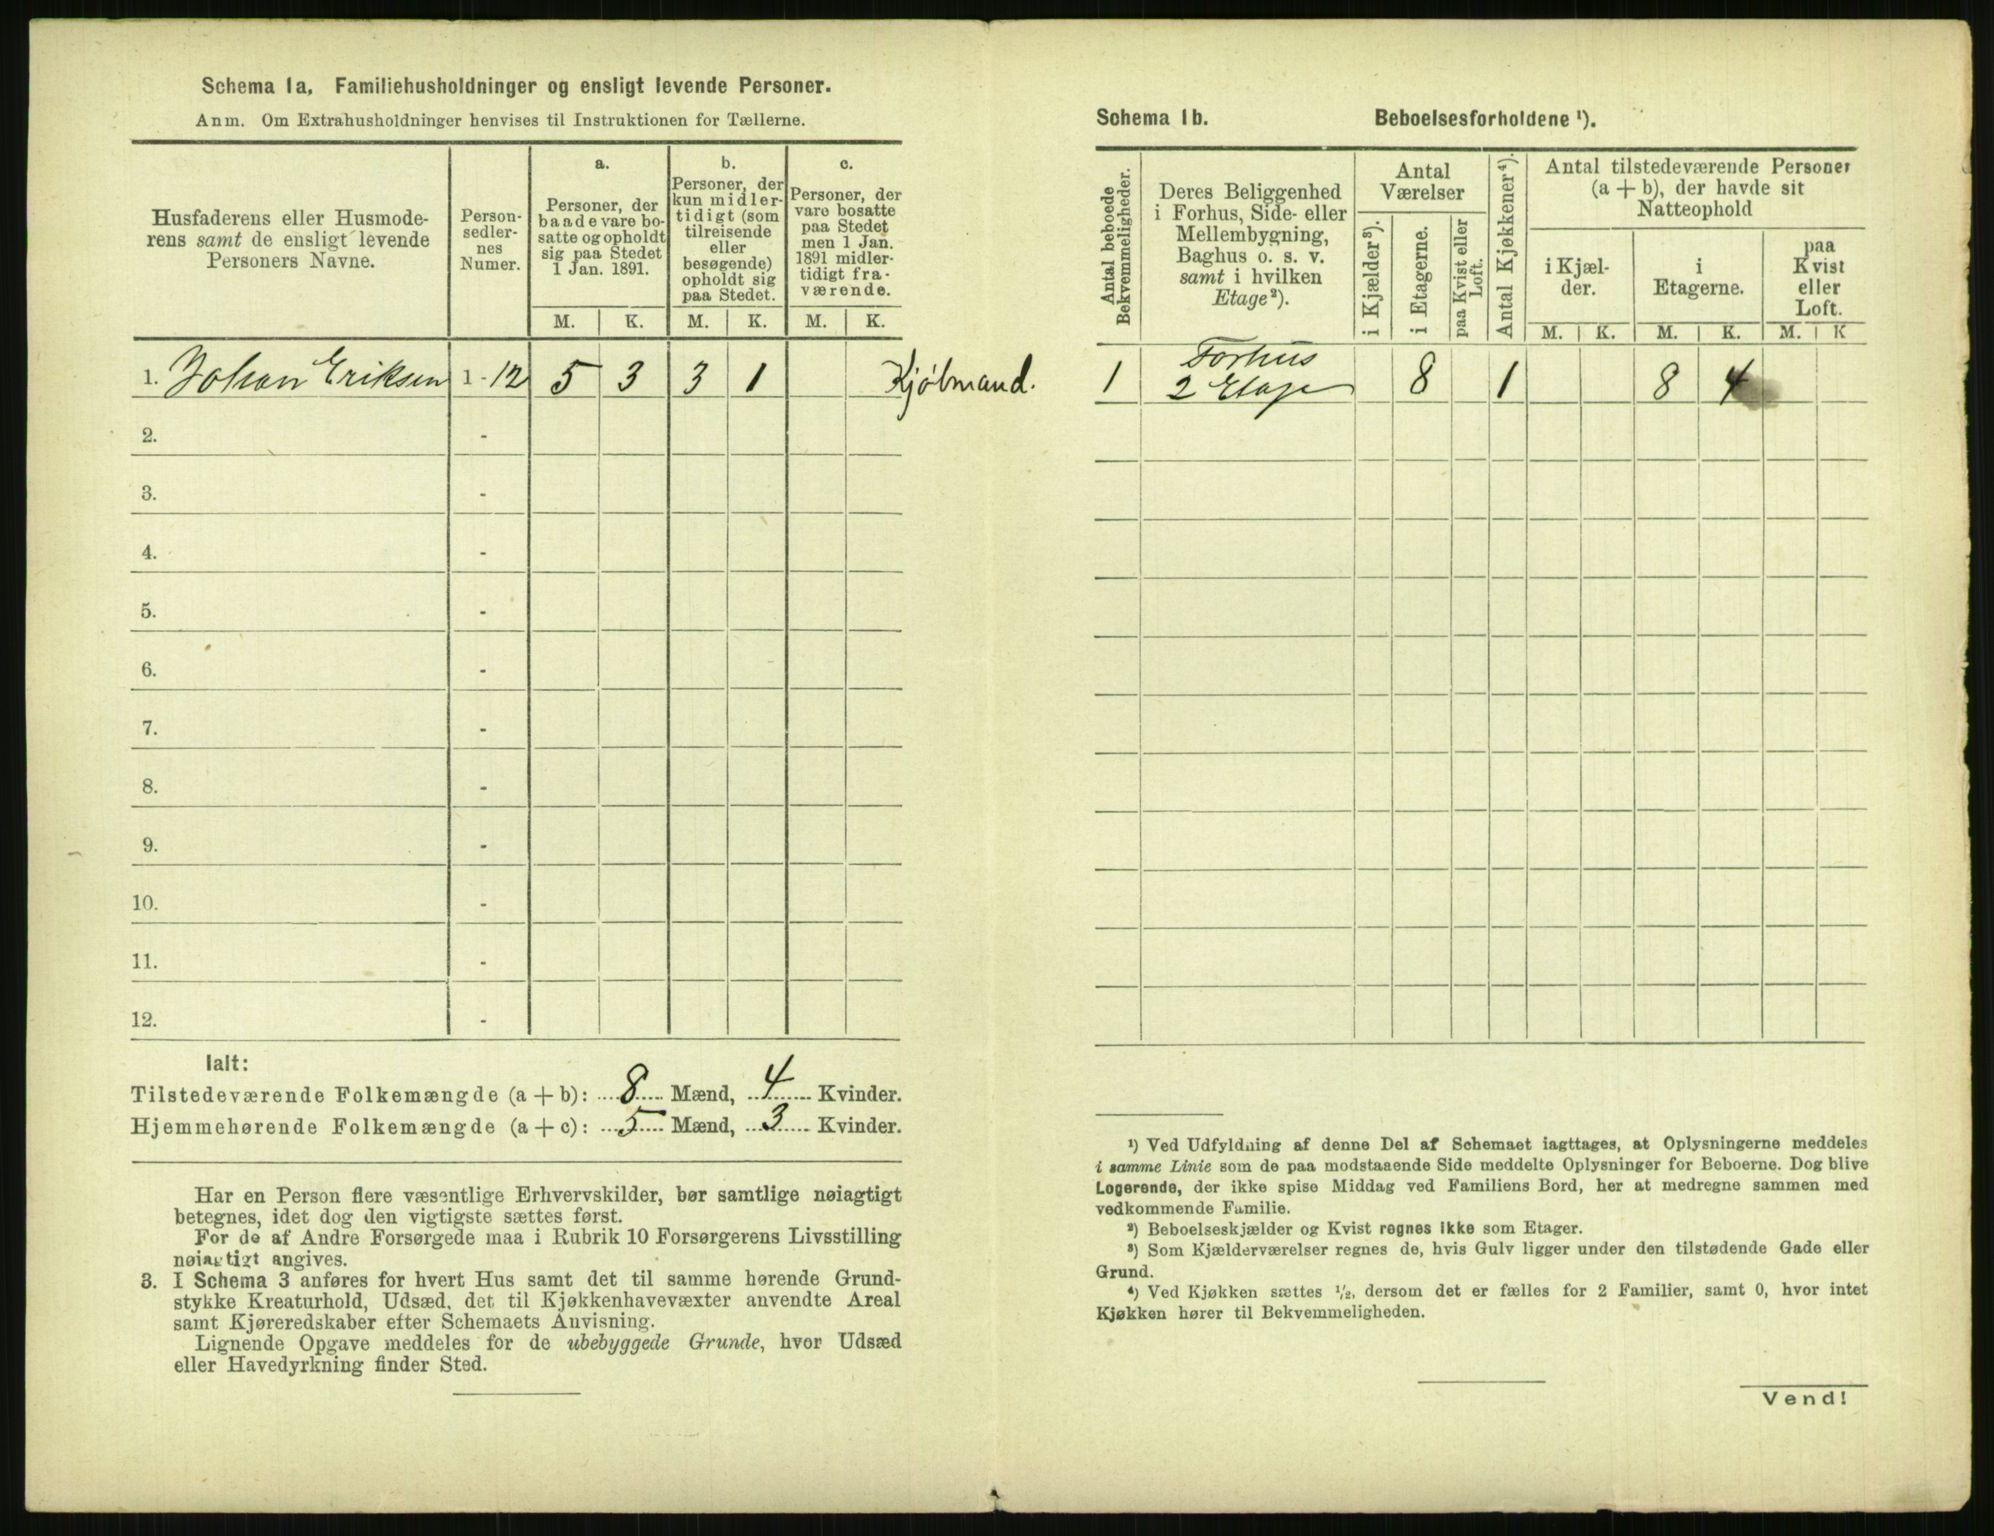 Schema 1a. Familiehusholdninger og ensligt levende Personer.
Anm. Om Extrahusholdninger henvises til Instruktionen for Tællerne.
Husfaderens eller Husmode-
rens samt de ensligt levende
Personers Navne.
Person-
sedler-
nes
Numer.
a.
Personer, der
baade vare bo-
satte og opholdt
sig paa Stedet
1 Jan. 1891.
b.
Personer, der
kun midler-
tidigt (som
tilreisende
eller
besøgende)
opholdt sig
paa Stedet.
c.
Personer, der
vare bosatte
paa Stedet
men 1 Jan.
1891 midler-
tidigt fra-
værende.
M. K. M. K. M. K.
1. Johan Eriksen 1 - 12 5 3 3 1 Kjøbmand.
2. -
3. -
4. -
5. -
6. -
7. -
8. -
9. -
10. -
11. -
12. -
Ialt:
Tilstedeværende Folkemængde (a + b): 8 Mænd, 4 Kvinder.
Hjemmehørende Folkemængde (a + c): 5 Mænd, 3 Kvinder.
Har en Person flere væsentlige Erhvervskilder, bør samtlige nøiagtigt
betegnes, idet dog den vigtigste sættes først.
For de af Andre Forsørgede maa i Rubrik 10 Forsørgerens Livsstilling
nøiagtigt angives.
3. I Schema 3 anføres for hvert Hus samt det til samme hørende Grund-
stykke Kreaturhold, Udsæd, det til Kjøkkenhavevæxter anvendte Areal
samt Kjøreredskaber efter Schemaets Anvisning.
Lignende Opgave meddeles for de ubebyggede Grunde, hvor Udsæd
eller Havedyrkning finder Sted.
Schema 1b. Beboelsesforholdene ¹).
Antal beboede
Bekvemmeligheder.
Deres Beliggenhed
i Forhus, Side- eller
Mellembygning,
Baghus o. s. v.
samt i hvilken
Etage ²).
Antal
Værelser
i Kjælder ³).
i Etagerne.
paa Kvist eller
Loft.
Antal Kjøkkener ⁴).
Antal tilstedeværende Personer
(a + b), der havde sit
Natteophold
i Kjæl-
der.
i
Etagerne.
paa
Kvist
eller
Loft.
M. K. M. K. M. K
1 Forhus
2 Etage 8 1 8 4
¹) Ved Udfyldning af denne Del af Schemaet iagttages, at Oplysningerne meddeles
i samme Linie som de paa modstaaende Side meddelte Oplysninger for Beboerne. Dog blive
Logerende, der ikke spise Middag ved Familiens Bord, her at medregne sammen med
vedkommende Familie.
²) Beboelseskjælder og Kvist regnes ikke som Etager.
³) Som Kjælderværelser regnes de, hvis Gulv ligger under den tilstødende Gade eller
Grund.
⁴) Ved Kjøkken sættes ½, dersom det er fælles for 2 Familier, samt 0, hvor intet
Kjøkken hører til Bekvemmeligheden.
Vend!